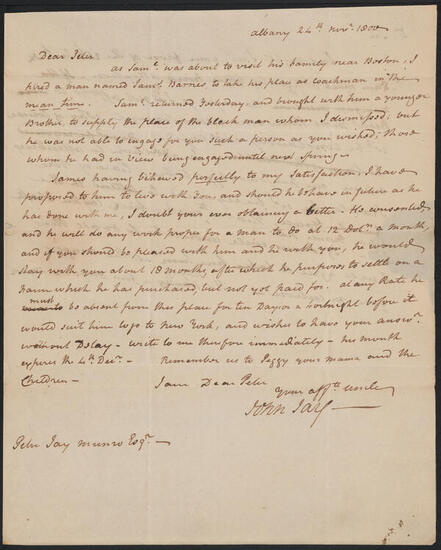 Albany 24th Novr. 1800
Dear Peter
as Saml. was about to visit his family near Boston, I
hired a man named Saml. Barnes to take his place as Coachman in the
mean time. Saml. returned Yesterday, and brought with him a younger
Brother to supply the place of the black man whom I dismissed, but
he was not able to engage for you such a person as you wished; those
whom he had in View being engaged until next Spring—
Barnes having behaved perfectly to my Satisfaction, I have
proposed to him to live with You, and should he behave in future as he
has done with me, I doubt your ever obtaining a better. He consented
and he will do any work proper for a man to do at 12 Dolrs. a month,
and if you should be pleased with him and he with you, he would
stay with you about 18 months, after which he purposes to settle on a
Farm which he has purchased, but not yet paid for. at any Rate he
must be absent from this place for ten Days or a fortnight before it
would suit him to go to New York, and wishes to have your answr.
without Delay— write to me therefore immediately— his month
expires the 4th. Decr.— Remember us to Peggy your mama and the
Children—
I am Dear Peter
Your affte. Uncle
John Jay—
Peter Jay Munro Esqr.—